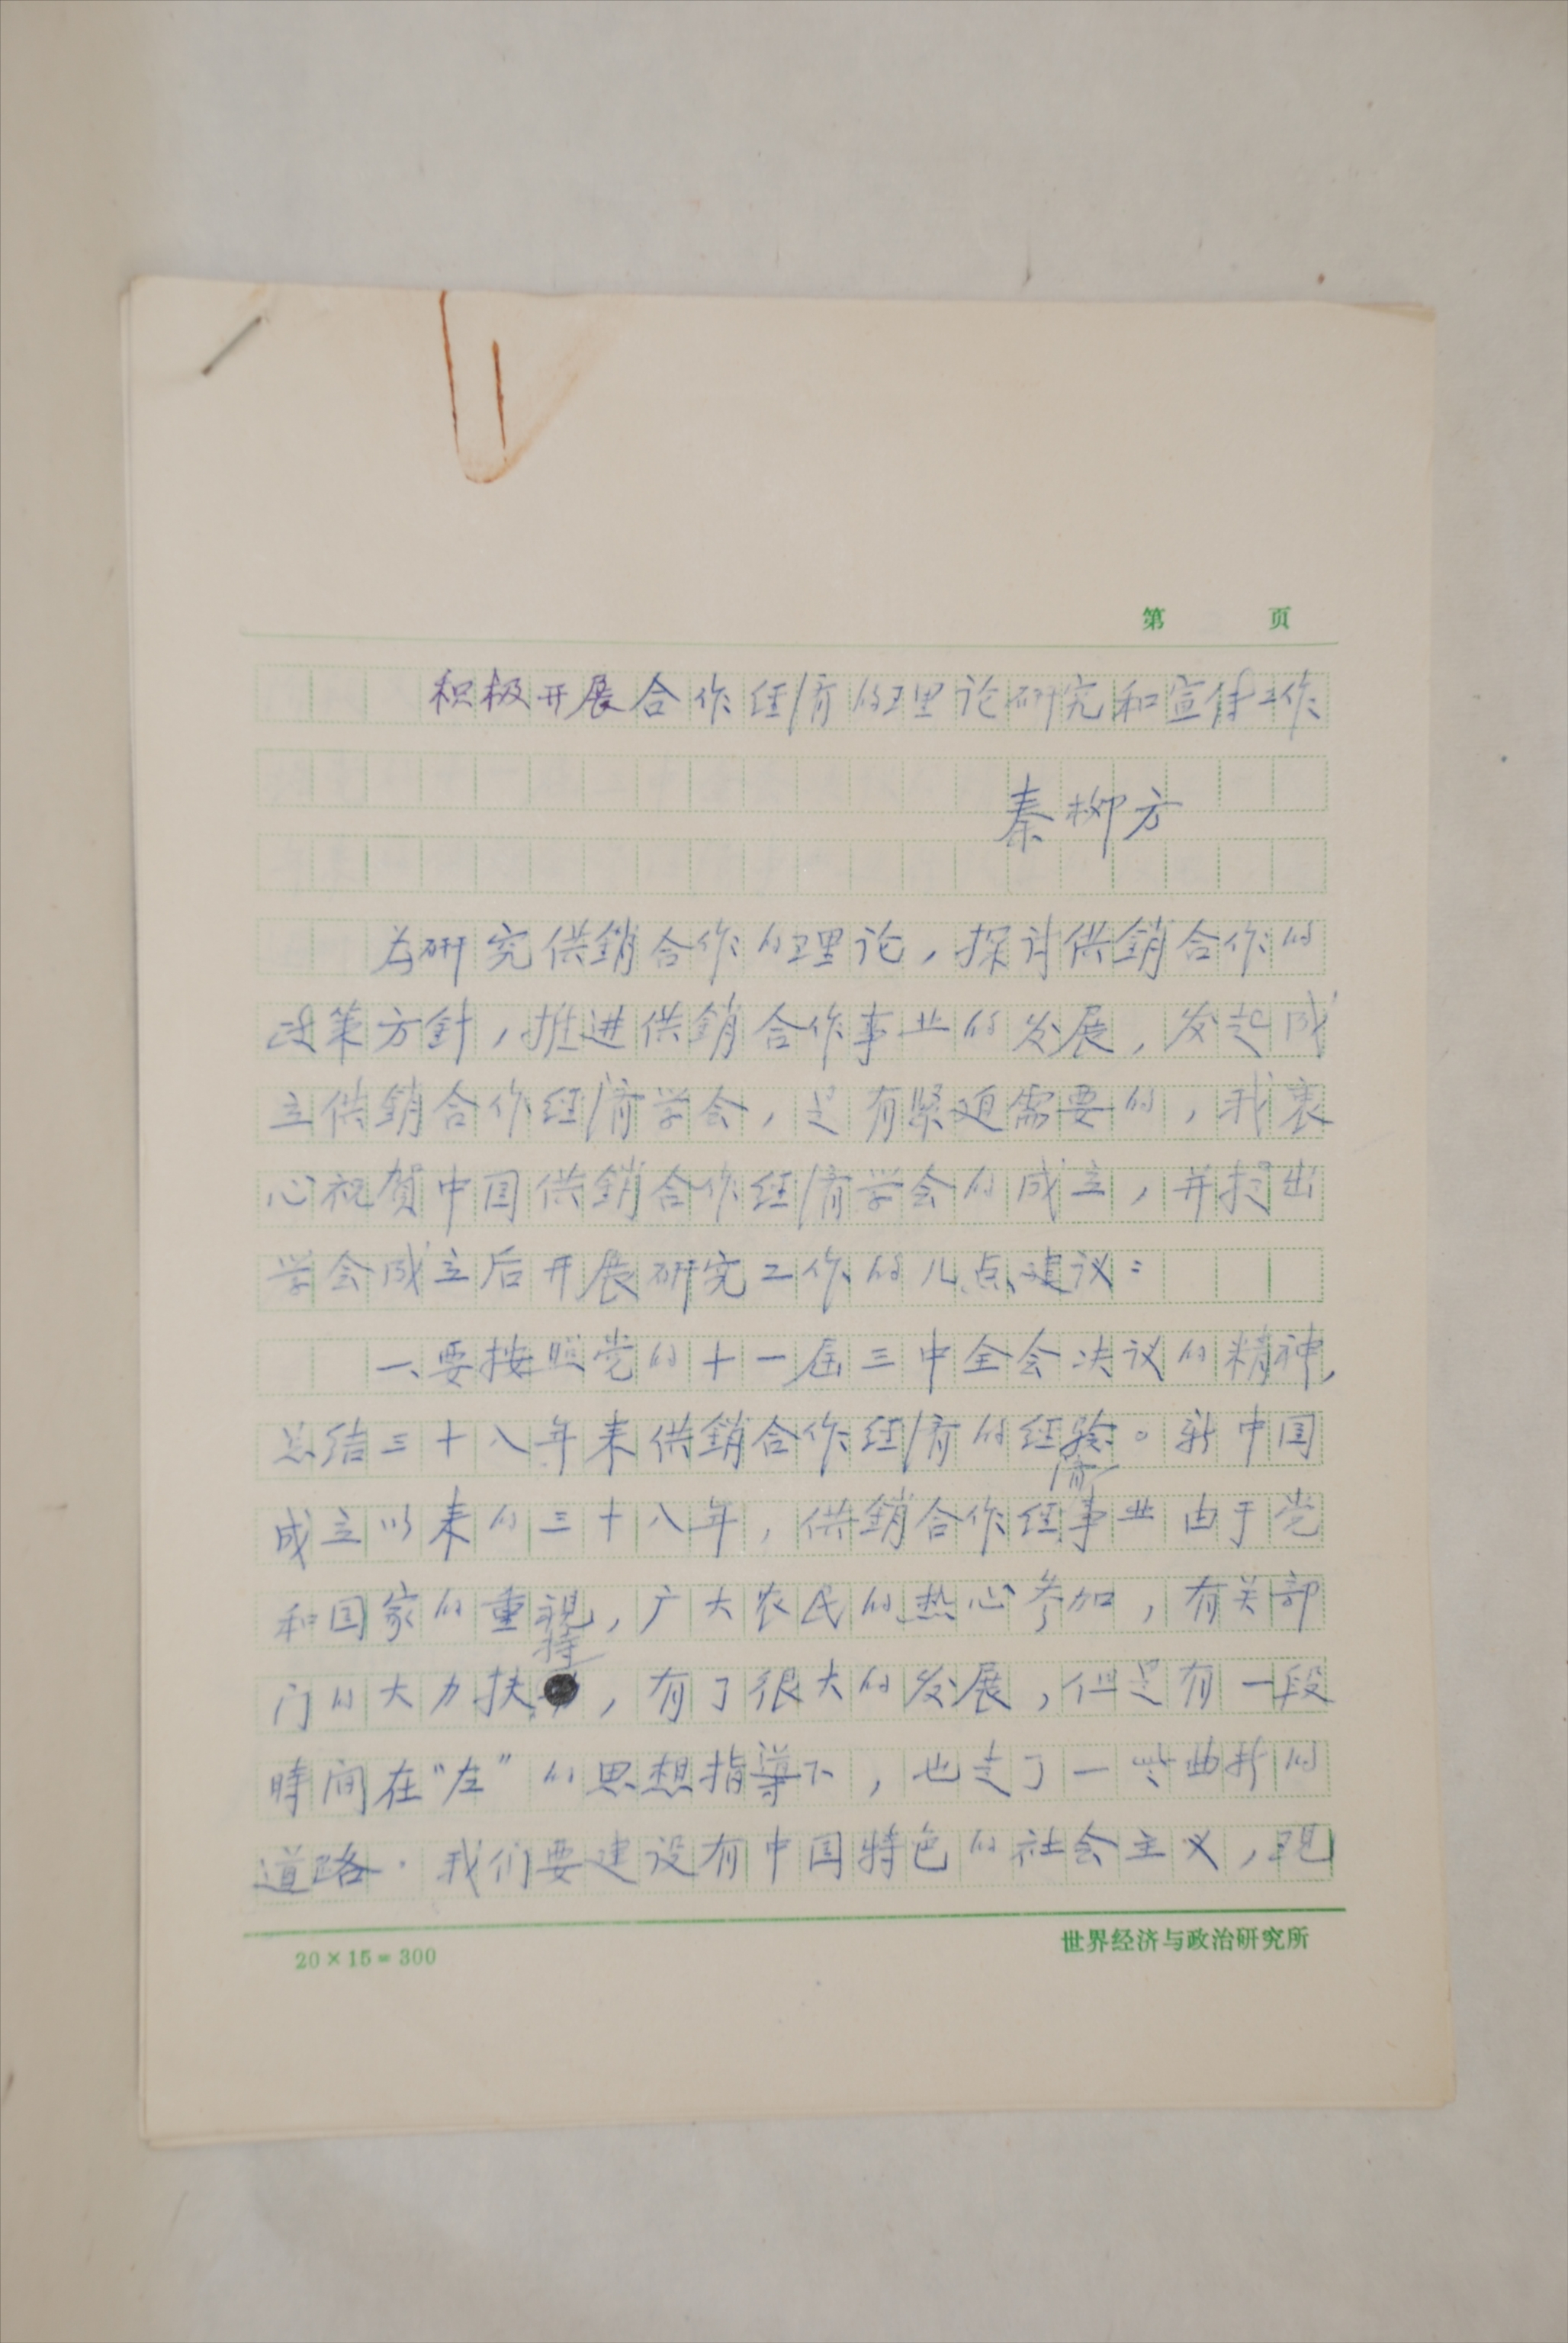 第 页
积极开展合作经济的理论研究和宣传工作
秦柳方
为研究供銷合作的理论，探讨供銷合作的
政策方針，推进供銷合作事业的发展，发起成
立供銷合作经济学会，是有紧迫需要的，我衷
心祝贺中国供銷合作经济学会的成立，并提出
学会成立后开展研究工作的几点建议：
一、要按照党的十一届三中全会决议的精神，
总结三十八年来供銷合作经济的经验。新中国
成立以来的三十八年，供銷合作经济事业由于党
和国家的重視，广大农民的热心参加，有关部
门的大力扶持，有了很大的发展，但是有一段
時间在“左”的思想指导下，也走了一些曲折的
道路．我们要建设有中国特色的社会主义，现
20×15=300
世界经济与政治研究所